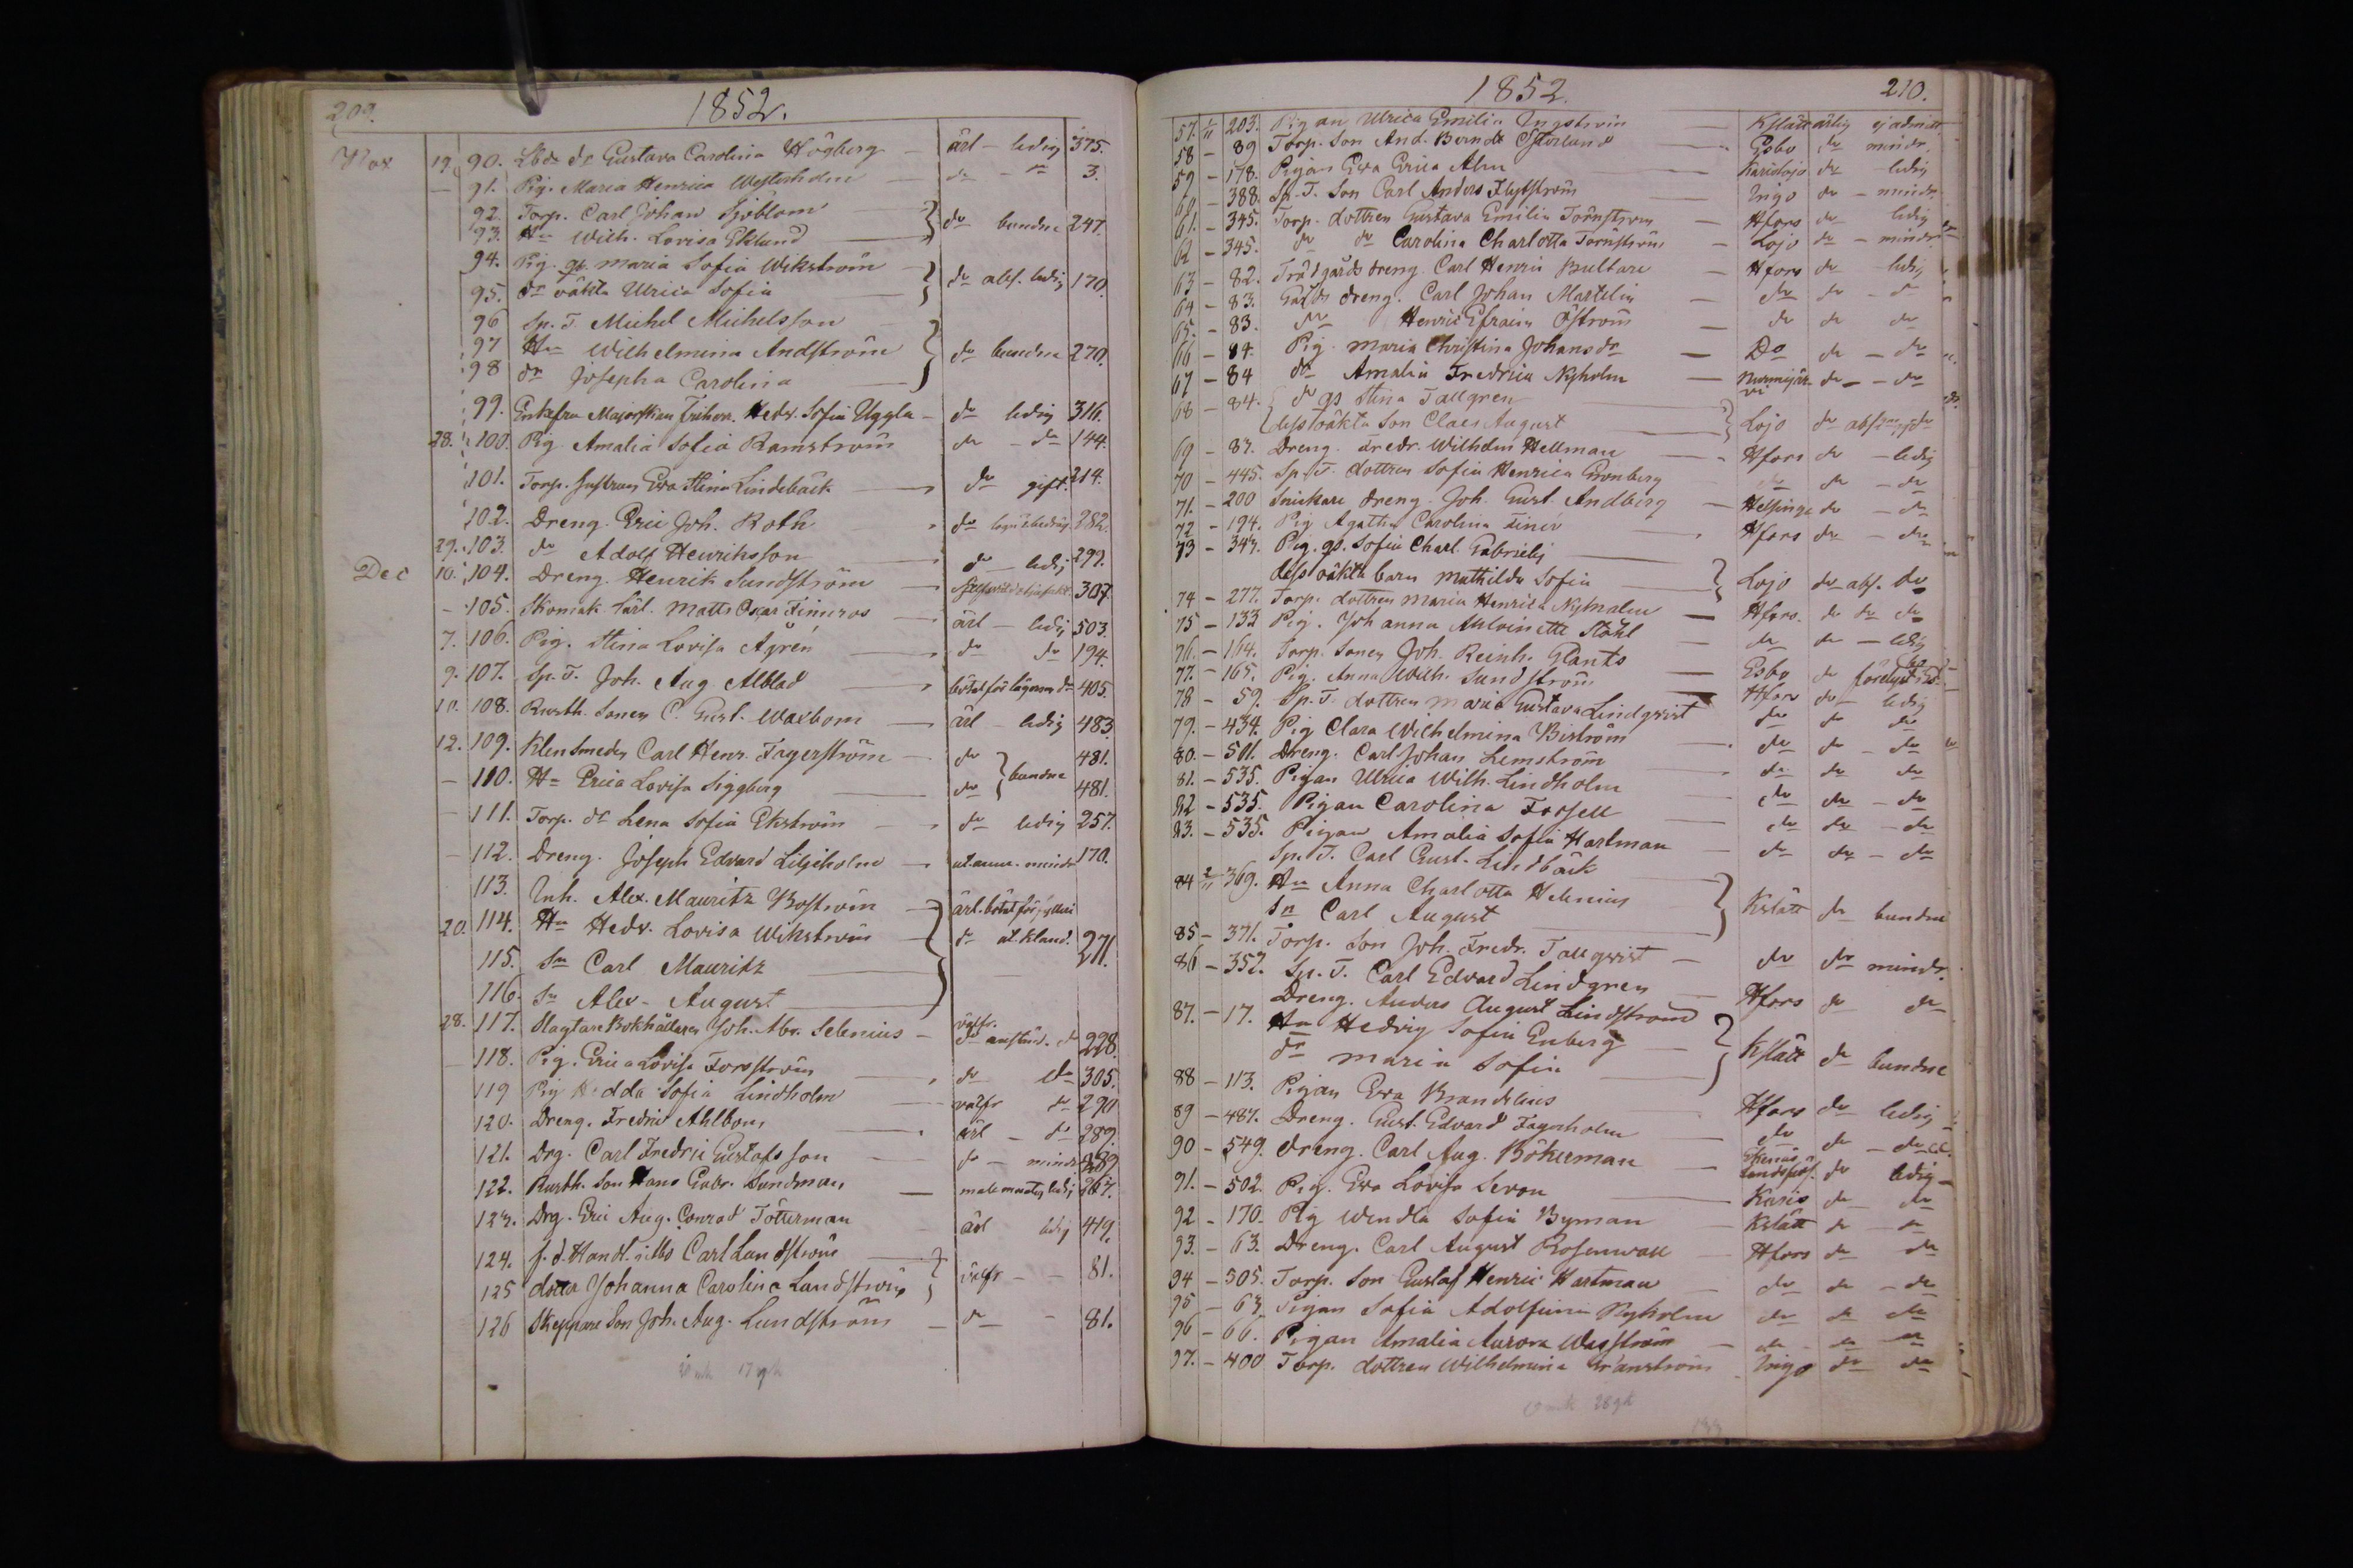 209.
1852.
Nov 19. 90. Lbds dr Gustava Carolina Högberg — ärl — ledig 375.
— 91. Pig. Maria Henrica Westerholm — do — do 3.
92. Torp. Carl Johan Sjöblom
93. Hu Wilh. Lovisa Eklund — do bundne 247.
94. Pig. gs. Maria Sofia Wikström
95. dr oäkta Ulrica Sofia — do abs. ledig 170.
96 Sp. T. Michel Michelsson
97 Hu Wilhelmina Andström do bundne 270.
98 dr Josepha Carolina
99. Enkefru Majorskan Friherr. Hedv. Sofia Uggla — do ledig 316.
28. 100. Pig Amalia Sofia Ramström do — do 144.
101. Torp. hustrun Eva Stina Lindebäck — do gift. 214.
102. Dreng Eric Joh. Roth do ledig 282.
29. 103. do Adolf Henriksson do ledig 299.
Dec 10. 104. Dreng. Henrik Sundström — 307.
— 105. Skomak. lärl. Matts Oscar Finnros — ärl — ledig 503.
7. 106. Pig. Stina Lovisa Ågrén — do do 194.
9. 107. Sp. T. Joh. Aug Alblad — bötat för lägersm. do 405.
10. 108. Rusth. Sonen C. Gust. Waxbom — ärl — ledig 483.
12. 109. Klensmeden Carl Henr. Fagerström — do 481.
— 110. Hu Erica Lovisa Siggberg — do bundne 481.
— 111. Torp. dr Lena Sofia Ekström — do ledig 257.
— 112. Dreng. Joseph Edvard Liljeholm — ut. anm. mindr 170.
113. Inh. Alex. Mauritz Boström — ärl. bötat för fylleri
20. 114. Hu Hedv. Lovisa Wikström — do ut. kland. 271.
115. Sn Carl Mauritz
116. Sn Alex. August
28. 117. Slagtare Bokhållaren Joh. Abr. Selenius — välfr. do anständ. do 228.
118. Pig. Erica Lovisa Forsström — do do 305.
119 Pig Hedda Sofia Lindholm — valfr do 290
120. Dreng. Fredric Ahlbom — ärl — do 289.
121. Drg. Carl Fredric Gustafsson — do — mindr 289
122. Rusth. Son Hans Gabr. Sundman — ledig 267.
123. Drg. Eric Aug. Conrad Tötterman ärl ledig 419.
124. f. d. Handl. Carl Lundström
125 dotter Johanna Carolina Lundström välfr — 81.
126 Skeppare Son Joh. Aug. Lundström — do — 81.
1852.
210.
57. 1/11 203. Pigan Ulrica Emilia Ingström — Kslätt ärlig ej admitt
58 — 89 Torp. Son And. Berndt Österlund — Esbo do mindr.
59 — 178. Pigan Eva Erica Alm — Karislojo do ledig
60 — 388. Sp. T. Son Carl Anders Flytström — Ingo do — mindr.
61. — 345. Torp. dottren Gustava Emilia Törnström — Hfors do ledig
62 — 345. do do Carolina Charlotta Törnström — Lojo do — mindr
63 — 82. Trädgårds dreng. Carl Henric Bultare — Hfors do ledig
64 — 83. Gårds dreng. Carl Johan Martelin — do do — do
65. — 83. do Henric Efraim Öström — do do do
66 — 84. Pig. Maria Christina Johansdr — Do do — do
67 — 84 do Amalia Fredrica Nyholm — Nurmijärvi do — do
68 — 84. do gs Stina Tallgren
dess oäkta Son Claes August — Lojo do abs
69 — 87. Dreng. Fredr. Wilhelm Hellman — Hfors do — ledig
70 — 445. Sp. T. dottren Sofia Henrica Grönberg do do — do
71. — 200 Snickare dreng. Joh. Gust. Andberg — Helsinge do — do
72 — 194. Pig Agatha Carolina Finér — Hfors do — do
73 — 347. Pig. gs. Sofia Charl. Gabrielij
dess oäkta barn Mathilda Sofia — Lojo do abs. do
74 — 277. Torp. dottren Maria Henrica Nyholm — Hfors. do do do
75 — 133 Pig. Johanna Antoinette Ståhl — do do — ledig
76 — 164. Torp. Sonen Joh. Reinh. Glants — Esbo do
77. — 165. Pig. Anna Wilh. Sundström — Hfors do — ledig
78 — 59. Sp. T. dottren Maria Gustava Lindqvist do do do
79. — 434. Pig Clara Wilhelmina Biström — do do — do
80. — 511. Dreng. Carl Johan Lemström — do do do
81. — 535. Pigan Ulrica Wilh. Lindholm — do do — do
82 — 535. Pigan Carolina Forsell — do do — do
83. — 535. Pigan Amalia Sofia Hartman — do do — do
Sp. T. Carl Gust. Lindbäck
84 2/11 369. Hu Anna Charlotta Helenius
Sn Carl August — Kslätt do bundne
85 — 371. Torp. Son Joh. Fredr. Tallqvist — do do mindr.
86 — 352. Sp. T. Carl Edvard Lindgren — Hfors do do
Dreng. Anders August Lindström
87. — 17. Hu Hedvig Sofia Enberg — Kslätt do bundne
dr Maria Sofia
88 — 113. Pigan Eva Brandelius — Hfors do ledig
89 — 487. Dreng. Gust. Edvard Fagerholm — do do — do
90 — 549. Dreng. Carl Aug. Bökerman — Ekenäs Landsförs. do ledig
91. — 502. Pig. Eva Lovisa Levon — Karis do do
92 — 170. Pig Wendla Sofia Byman — Kslätt do — do
93. — 63. Dreng. Carl August Rosenwall — Hfors do do
94 — 505. Torp. Son Gustaf Henric Hartman — do do — do
95 — 63. Pigan Sofia Adolfina Nyholm do do do
96 — 66. Pigan Amalia Aurora Wasström — do do do
97. — 400 Torp. dottren Wilhelmina Granström Ingo do do